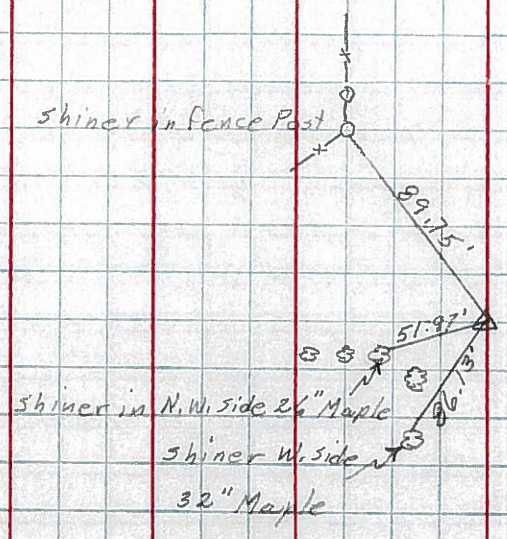 shiner in fence Post
89.75'
51.97'
shiner in N.W. side Maple
shiner W. side
32" Maple